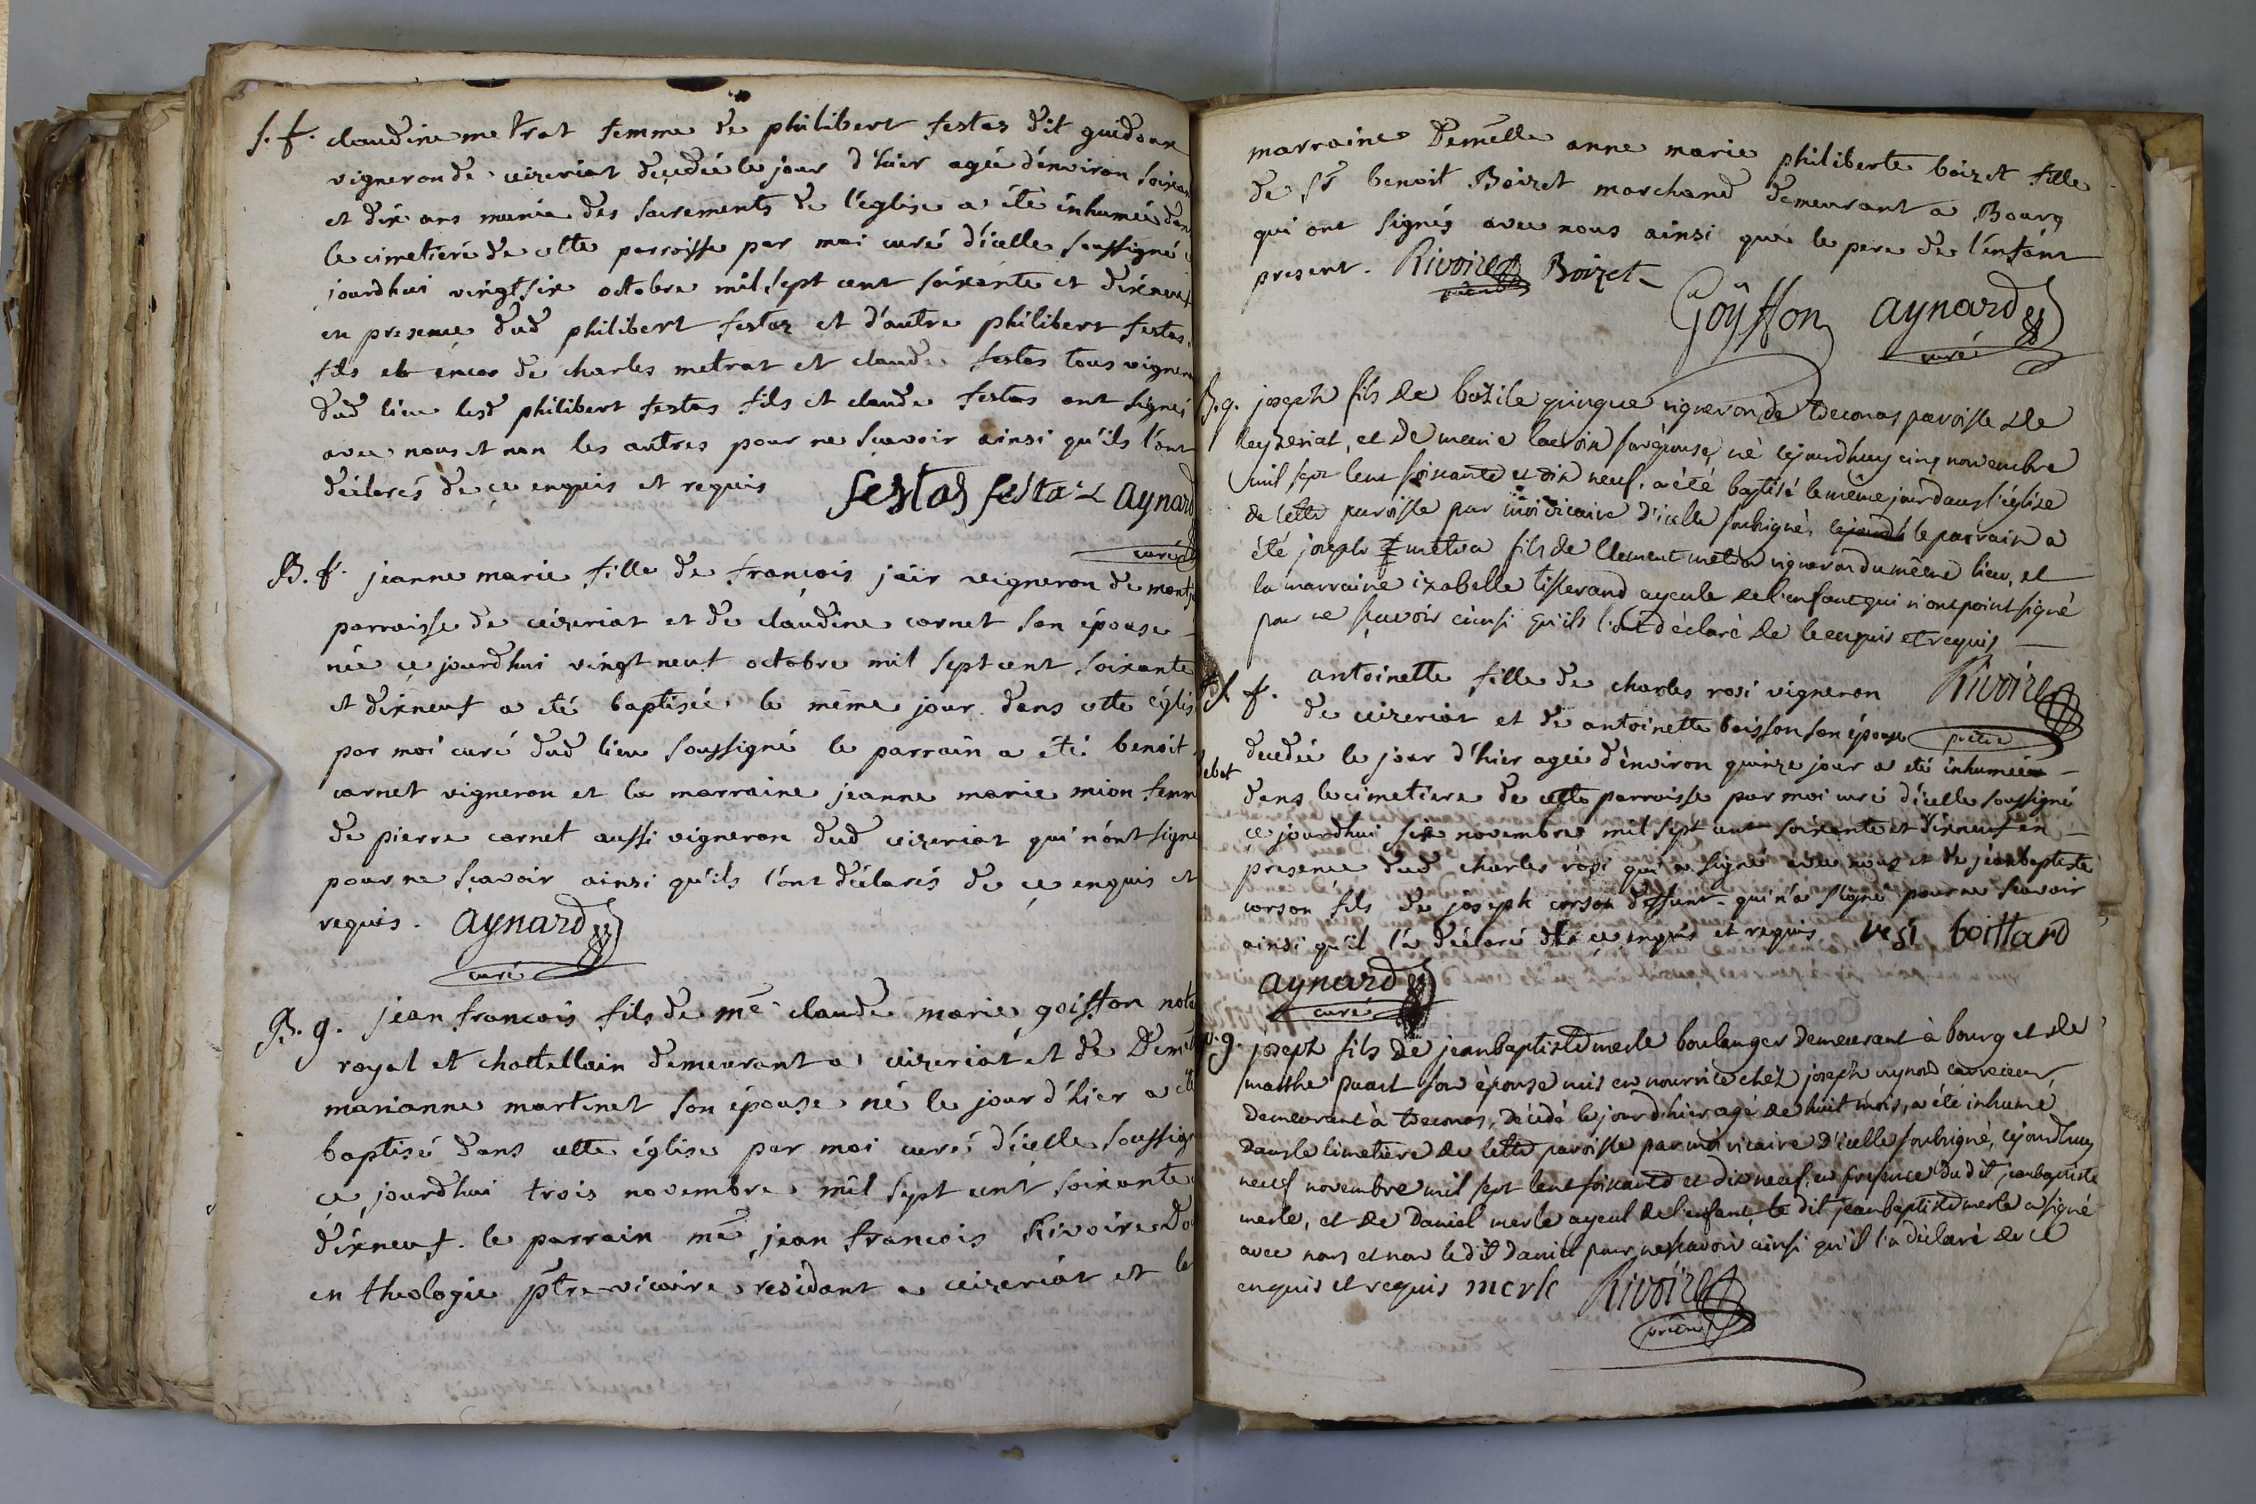 S. f. claudine metrat femme de philibert festas dit guidoux
vigneron de ceizeriat decedée le jour d'hier agée d'environ soixan
et dix ans munie des sacrements de l'église a été inhumée dan
le cimetiere de cette parroisse par moi curé d'icelle soussigné
jourdhui vingt six octobre mil sept cent soixante et dixneuf
en presence dud philibert festas et d'autre philibert festas
fils et encor de charles metrat et claude festas tous vigner
dud lieu lesd philibert festas fils et claude festas ont signés
avec nous et non les autres pour ne sçavoir ainsi qu'ils l'ont
déclarés de ce enquis et requis festas festaz aynard
curé
B. f. jeanne marie fille de francois jair vigneron de mont
parroisse de ceizeriat et de claudine carnet son épouse
née ce jourdhui vingt neuf octobre mil sept cent soixante
et dixneuf a eté baptisée le même jour dans cette églis
par moi curé dud lieu soussigné le parrain a été benoit
carnet vigneron et la marraine jeanne marie mion femm
de pierre carnet aussi vigneron dud ceizeriat qui n'ont signé
pour ne sçavoir ainsi qu'ils l'ont déclarés de ce enquis et
requis. aynard
curé
B. g. jean francois fils de me claude marie goiffon nota
royal et chattellain demeurant a ceizeriat et de Demlle
marianne martinet son épouse né le jour d'hier a eté
baptisé dans cette église par moi curé d'icelle soussign
ce jourdhui trois novembre mil sept cent soixante
dixneuf. le parrain me jean francois Rivoire Do
en theologie ptre vicaire residant a ceizeriat et la
marraine Demelle anne marie philiberte boizet fille
de sr benoit Boizet marchand demeurant a Bourg
qui ont signés avec nous ainsi que le pere de l'enfant
present. Rivoire Boizet
Goÿffon aynard
curé
B. g. joseph fils de bazile quinque vigneron de tteconas paroisse de
Ceyzeriat, et de marie lacroix son épouse, né cejourdhuy cinq novembre
mil sept cent soixante et dix neuf, a été baptisé le même jour dans l'église
de cette paroisse par moi vicaire d'icelle soubsigné, le parrain a
été joseph metra fils de Clement metra vigneron du même lieu, et
la marraine izabelle tisserand ayeule de l'enfant qui n'ont point signé
pour ne sçavoir ainsi qu'ils l'ont déclaré de ce enquis et requis
Rivoire
prêtre
S. f. antoinette fille de charles rosi vigneron
de ceizeriat et de antoinette boisson son épouse
decedée le jour d'hier agée d'environ quinze jour a eté inhumée
dans le cimetiere de cette parroisse par moi curé d'icelle soussigné
ce jourdhui six novembre mil sept cent soixante et dixneuf en
presence dud charles rosi qui a signé avec nous et de jean baptiste
corson fils de joseph corson deffunt qui n'a signé pour ne sçavoir
ainsi qu'il l'a déclaré de ce enquis et requis boittard
aynard
curé
S. g. joseph fils de jean baptiste merle boulanger demeurant à bourg et de
marthe puart son épouse mis en nourrice chez joseph aynard
demeurant à tteconas, décédé le jour d'hier agé de huit mois, a été inhumé
dans le cimetiere de cette paroisse par moi vicaire d'icelle soubsigné, cejourdhuy
neuf novembre mil sept cent soixante et dix neuf, en presence du dit jean baptiste
merle, et de Daniel merle ayeul de l'enfant, le dit jean baptiste merle a signé
avec nous et non le dit Daniel pour ne sçavoir ainsi qu'il l'a déclaré de ce
enquis et requis merle Rivoire
prêtre